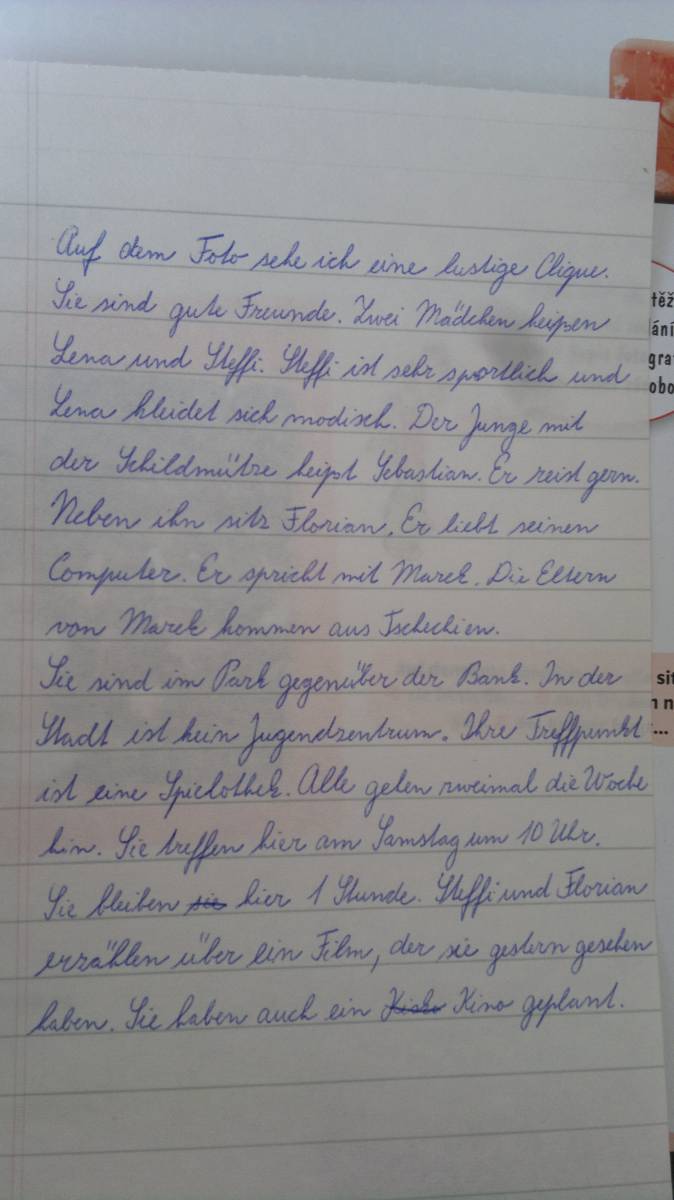 Auf dem Foto sehe ich eine lustige Clique.
Sie sind gute Freunde. Zwei Mädchen heißen
Lena und Steffi. Steffi ist sehr sportlich und
Lena kleidet sich modisch. Der Junge mit
der Schildmütze heißt Sebastian. Er reist gern.
Neben ihn sitz Florian. Er liebt seinen
Computer. Er spricht mit Marek. Die Eltern
von Marek kommen aus Tschechien.
Sie sind im Park gegenüber der Bank. In der
Stadt ist kein Jugendzentrum. Ihre Treffpunkt
ist eine Spielothek. Alle gehen zweimal die Woche
hin. Sie treffen hier am Samstag um 10 Uhr.
Sie bleiben sie hier 1 Stunde. Steffi und Florian
erzählen über ein Film, der sie gestern gesehen
haben. Sie haben auch ein Kino geplant.
těž
ání
gra
obo
sit
n n
...